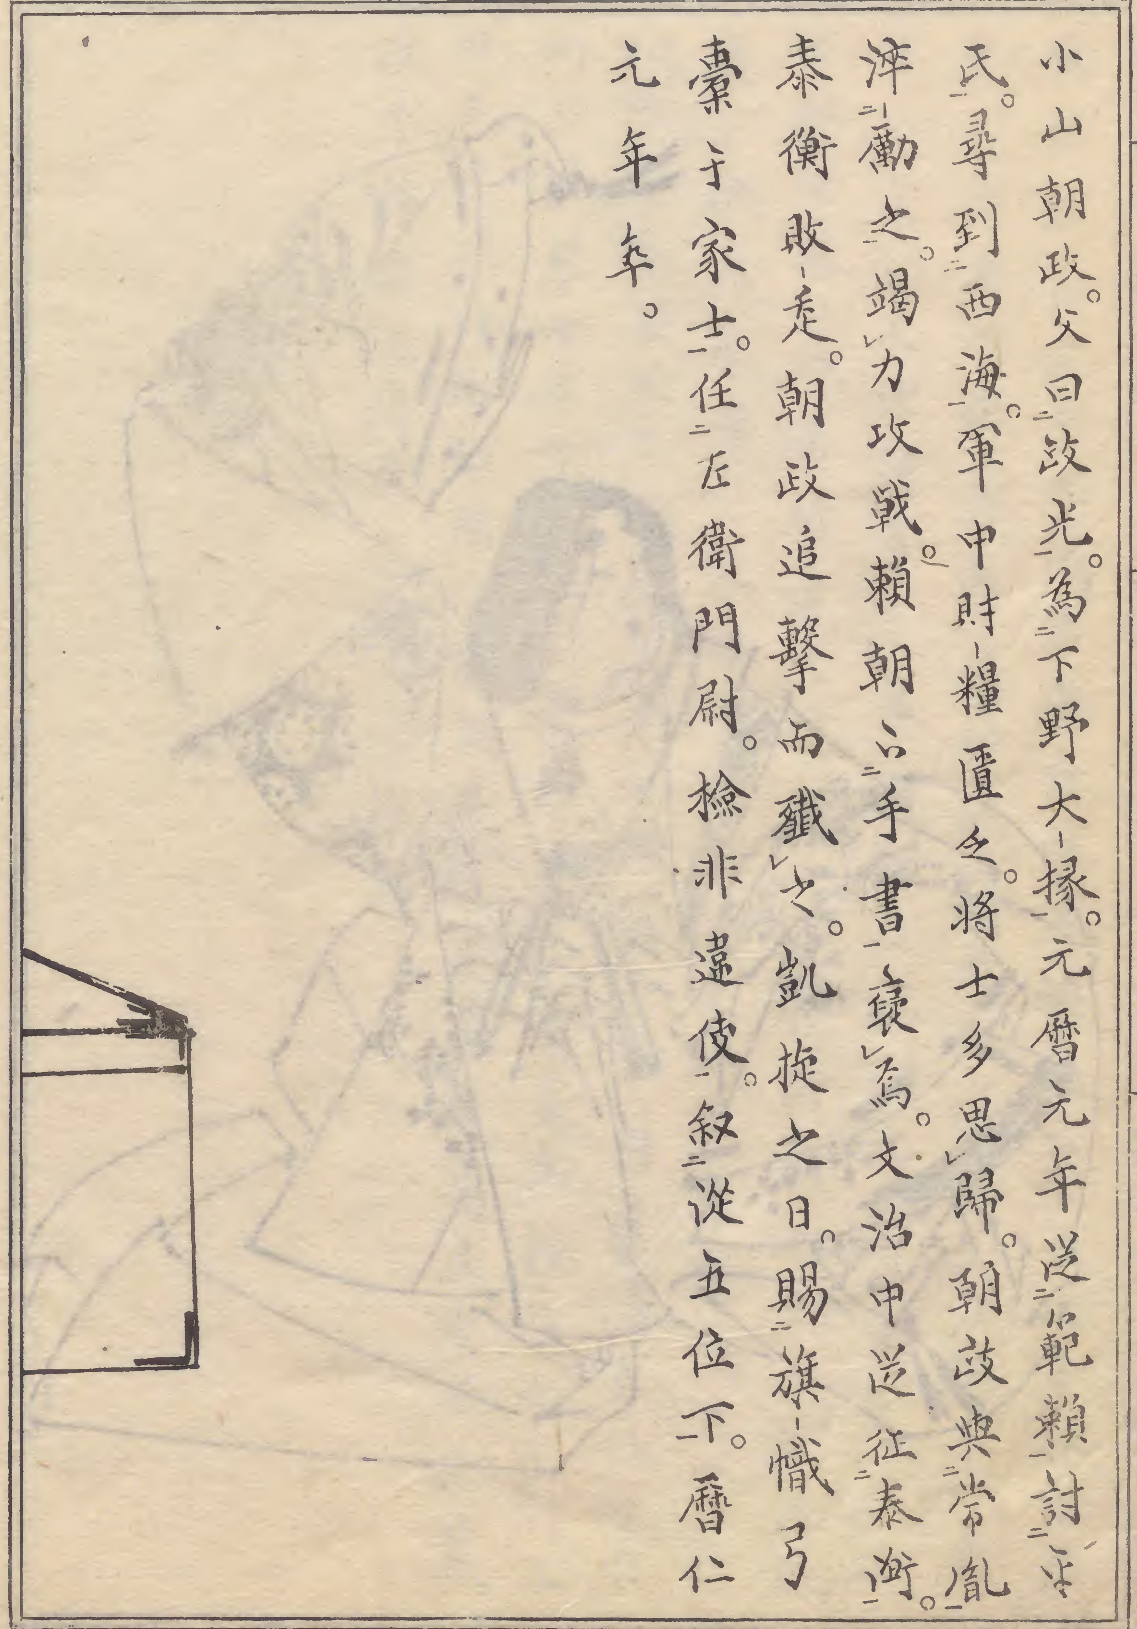 小山朝政。父曰政光。為下野大掾。元暦元年従範頼討平
氏。尋到西海。軍中財糧匱乏。将士多思歸。朝政與常胤
淬勵之。竭力攻戦。頼朝以手書褒焉。文治中従征泰衡。
泰衡敗走。朝政追撃而殲之。凱旋之日。賜旗幟弓
櫜于家士。任左衛門尉。檢非違使。叙従五位下。暦仁
元年卒。